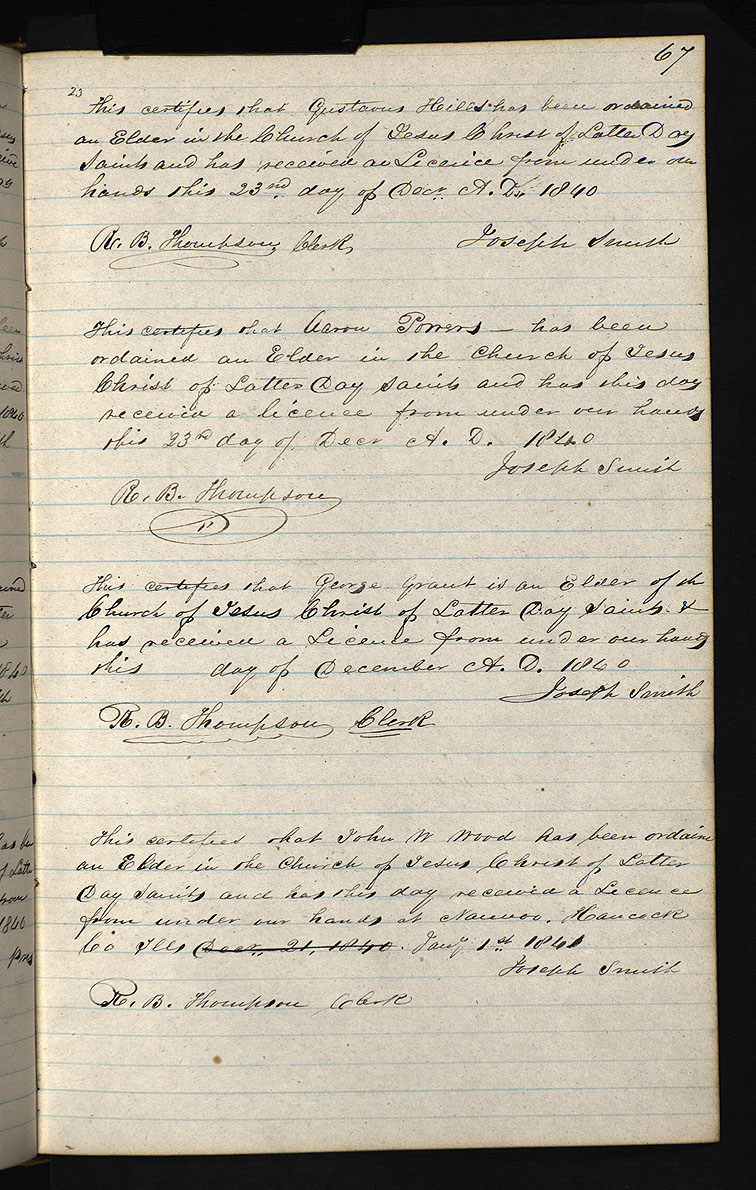 67
23
This certifies that Gustavus Hills has been ordained
an Elder in the Church of Jesus Christ of Latter Day
Saints and has received a Licence from under our
hands this 23nd day of Decr. A. D. 1840
R. B. Thompson, Clerk, Joseph Smith
This certifies that Aaron Powers — has been
ordained an Elder in the Church of Jesus
Christ of Latter Day Saints and has this day
received a licence from under our hands
this 23rd day of Decr A. D. 1840
Joseph Smith
R. B. Thompson
This certifies that George Grant is an Elder of th
Church of Jesus Christ of Latter Day Saints &
has received a Licence from under our hands
this day of December A. D. 1840
Joseph Smith
R. B. Thompson Clerk
This certifies that John W Wood has been ordaine
an Elder in the Church of Jesus Christ of Latter
Day Saints and has this day received a Licence
from under our hands at Nauvoo. Hancock
Co Ills Decr. 21, 1840. Jany 1st 1841
Joseph Smith
R. B. Thompson Clerk